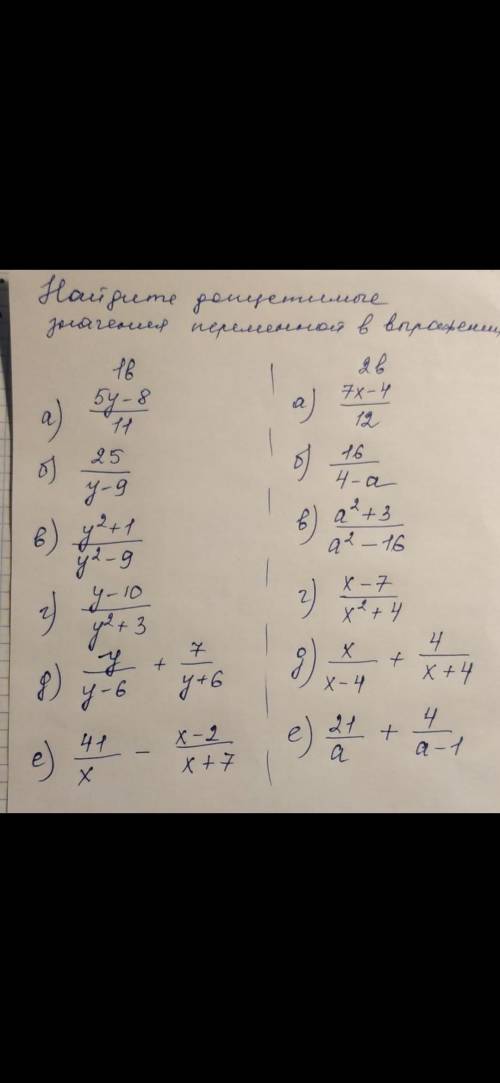 Найдите допустимые
значения переменной в выражении
1в
а) (5y-8)/11
б) 25/(y-9)
в) (y²+1)/(y²-9)
г) (y-10)/(y²+3)
д) y/(y-6) + 7/(y+6)
е) 41/x - (x-2)/(x+7)
2в
а) (7x-4)/12
б) 16/(4-a)
в) (a²+3)/(a²-16)
г) (x-7)/(x²+4)
д) x/(x-4) + 4/(x+4)
е) 21/a + 4/(a-1)